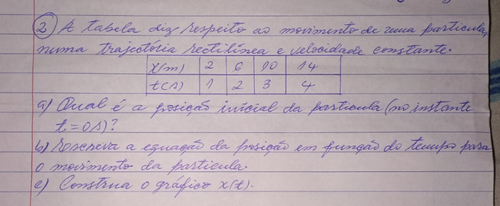 2) A tabela diz respeito ao movimento de uma particula,
numa trajectoria rectilínea e velocidade constante.
X(m) 2 6 10 14
t(s) 1 2 3 4
a) Qual é a posição inicial da particula (no instante
t=0s)?
b) Escreva a equação da posição em função do tempo para
o movimento da particula.
c) Construa o gráfico x(t).